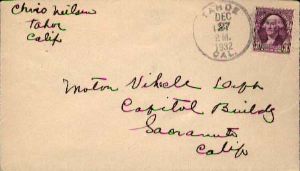 Chris Neilsen
Tahoe
Calif
TAHOE
DEC
27
P.M.
1932
CAL.
Motor Vihcle Dept
Capitol Buildg
Sacramento
Calif